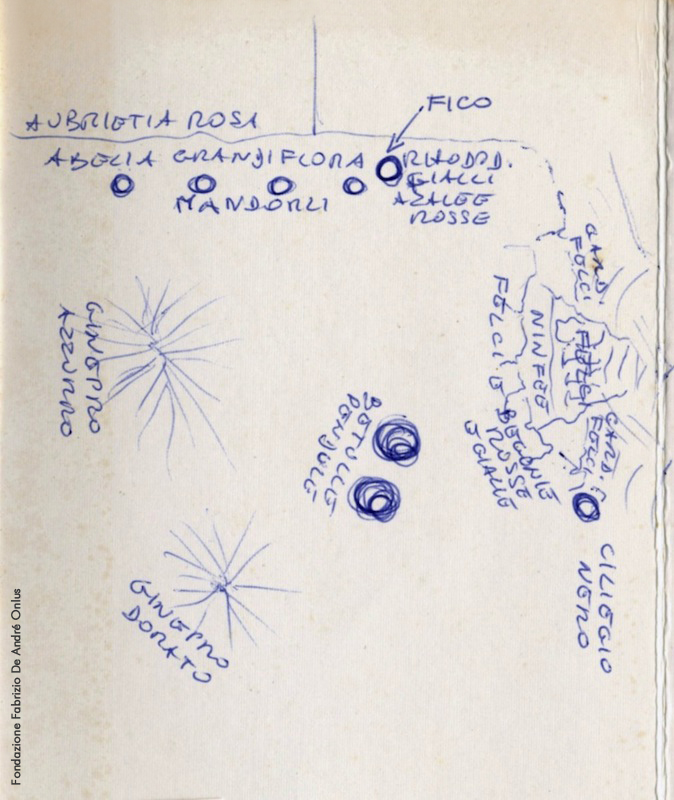 FICO
AUBRIETIA ROSA
ABELIA GRANDIFLORA
RHODOD.
GIALLI
MANDORLI
AZALEE
ROSSE
GARD.
FELCI
GINEPRO
AZZURRO
FELCI E BEGONIE
ROSSE
E GIALLE
NINFEE
GARD. E
FELCI
BETULLE
PENDULE
CILIEGIO
NERO
GINEPRO
DORATO
Fondazione Fabrizio De André Onlus